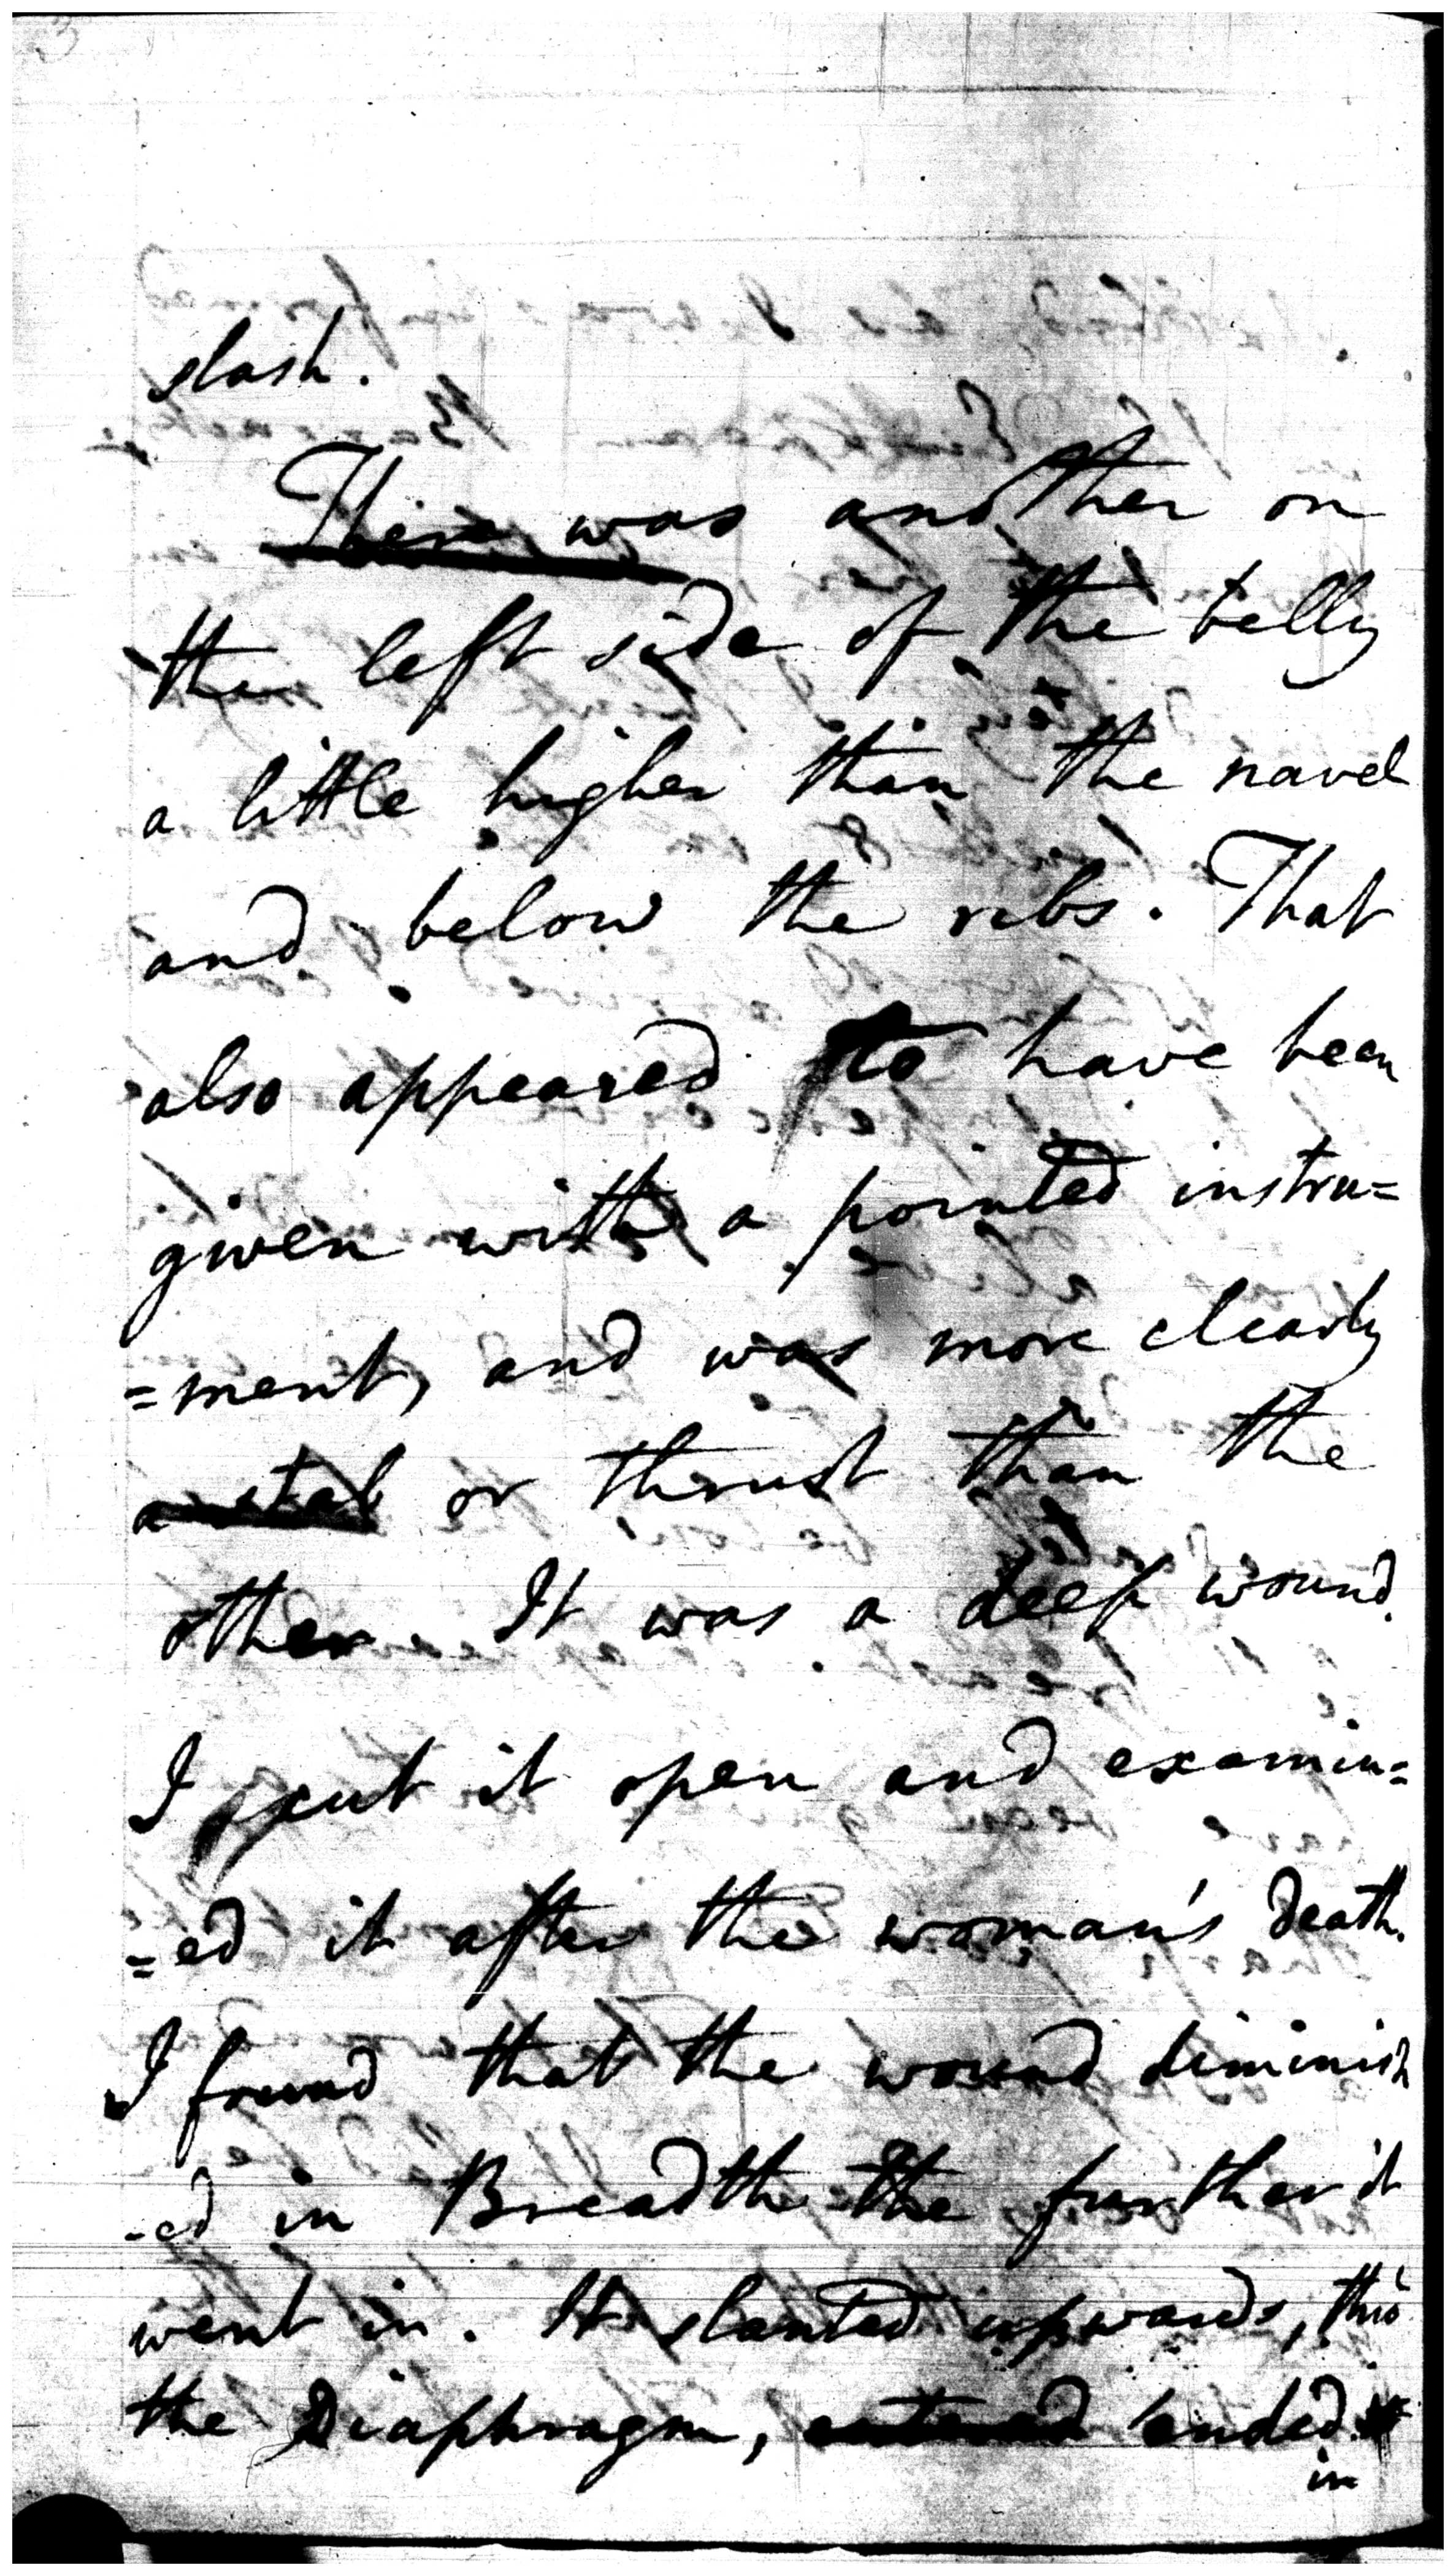 slash.
There was another on
the left side of the belly
a little higher than the navel
and below the ribs. That
also appeared to have been
given with a pointed instru=
=ment, and was more clearly
a stab or thrust than the
other. It was a deep wound.
I cut it open and examin=
=ed it after the woman's death.
I found that the wound diminish
-ed in Breadth the further it
went in. It slanted upwards, thro'
the Diaphragm, entered ended
in